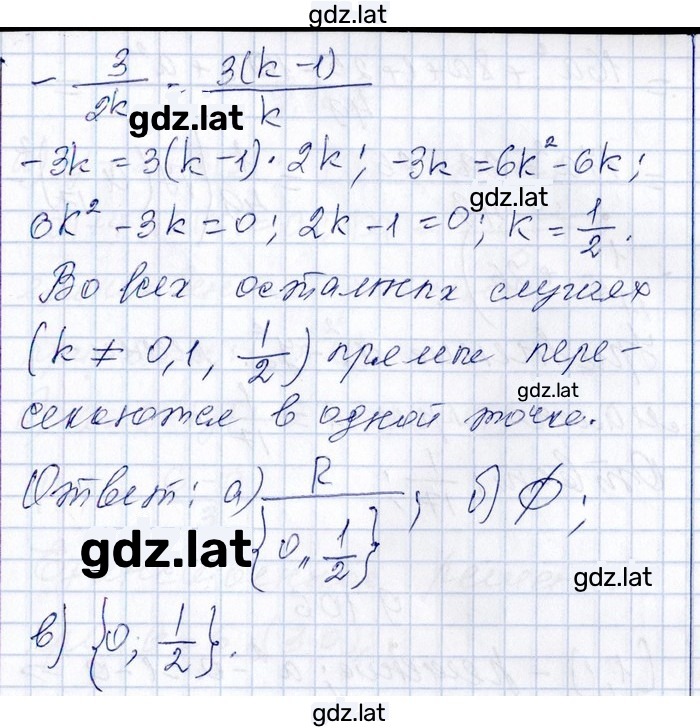 gdz.lat
- 3/2k = 3(k-1)/k
gdz.lat
-3k = 3(k-1)·2k; -3k = 6k² - 6k;
gdz.lat
6k² - 3k = 0; 2k - 1 = 0; k = 1/2.
Во всех остальных случаях
(k ≠ 0,1, 1/2) прямые пере-
gdz.lat
секаются в одной точке.
Ответ: а) R/{0,, 1/2}; б) ∅;
gdz.lat
gdz.lat
в) {0; 1/2}.
gdz.lat